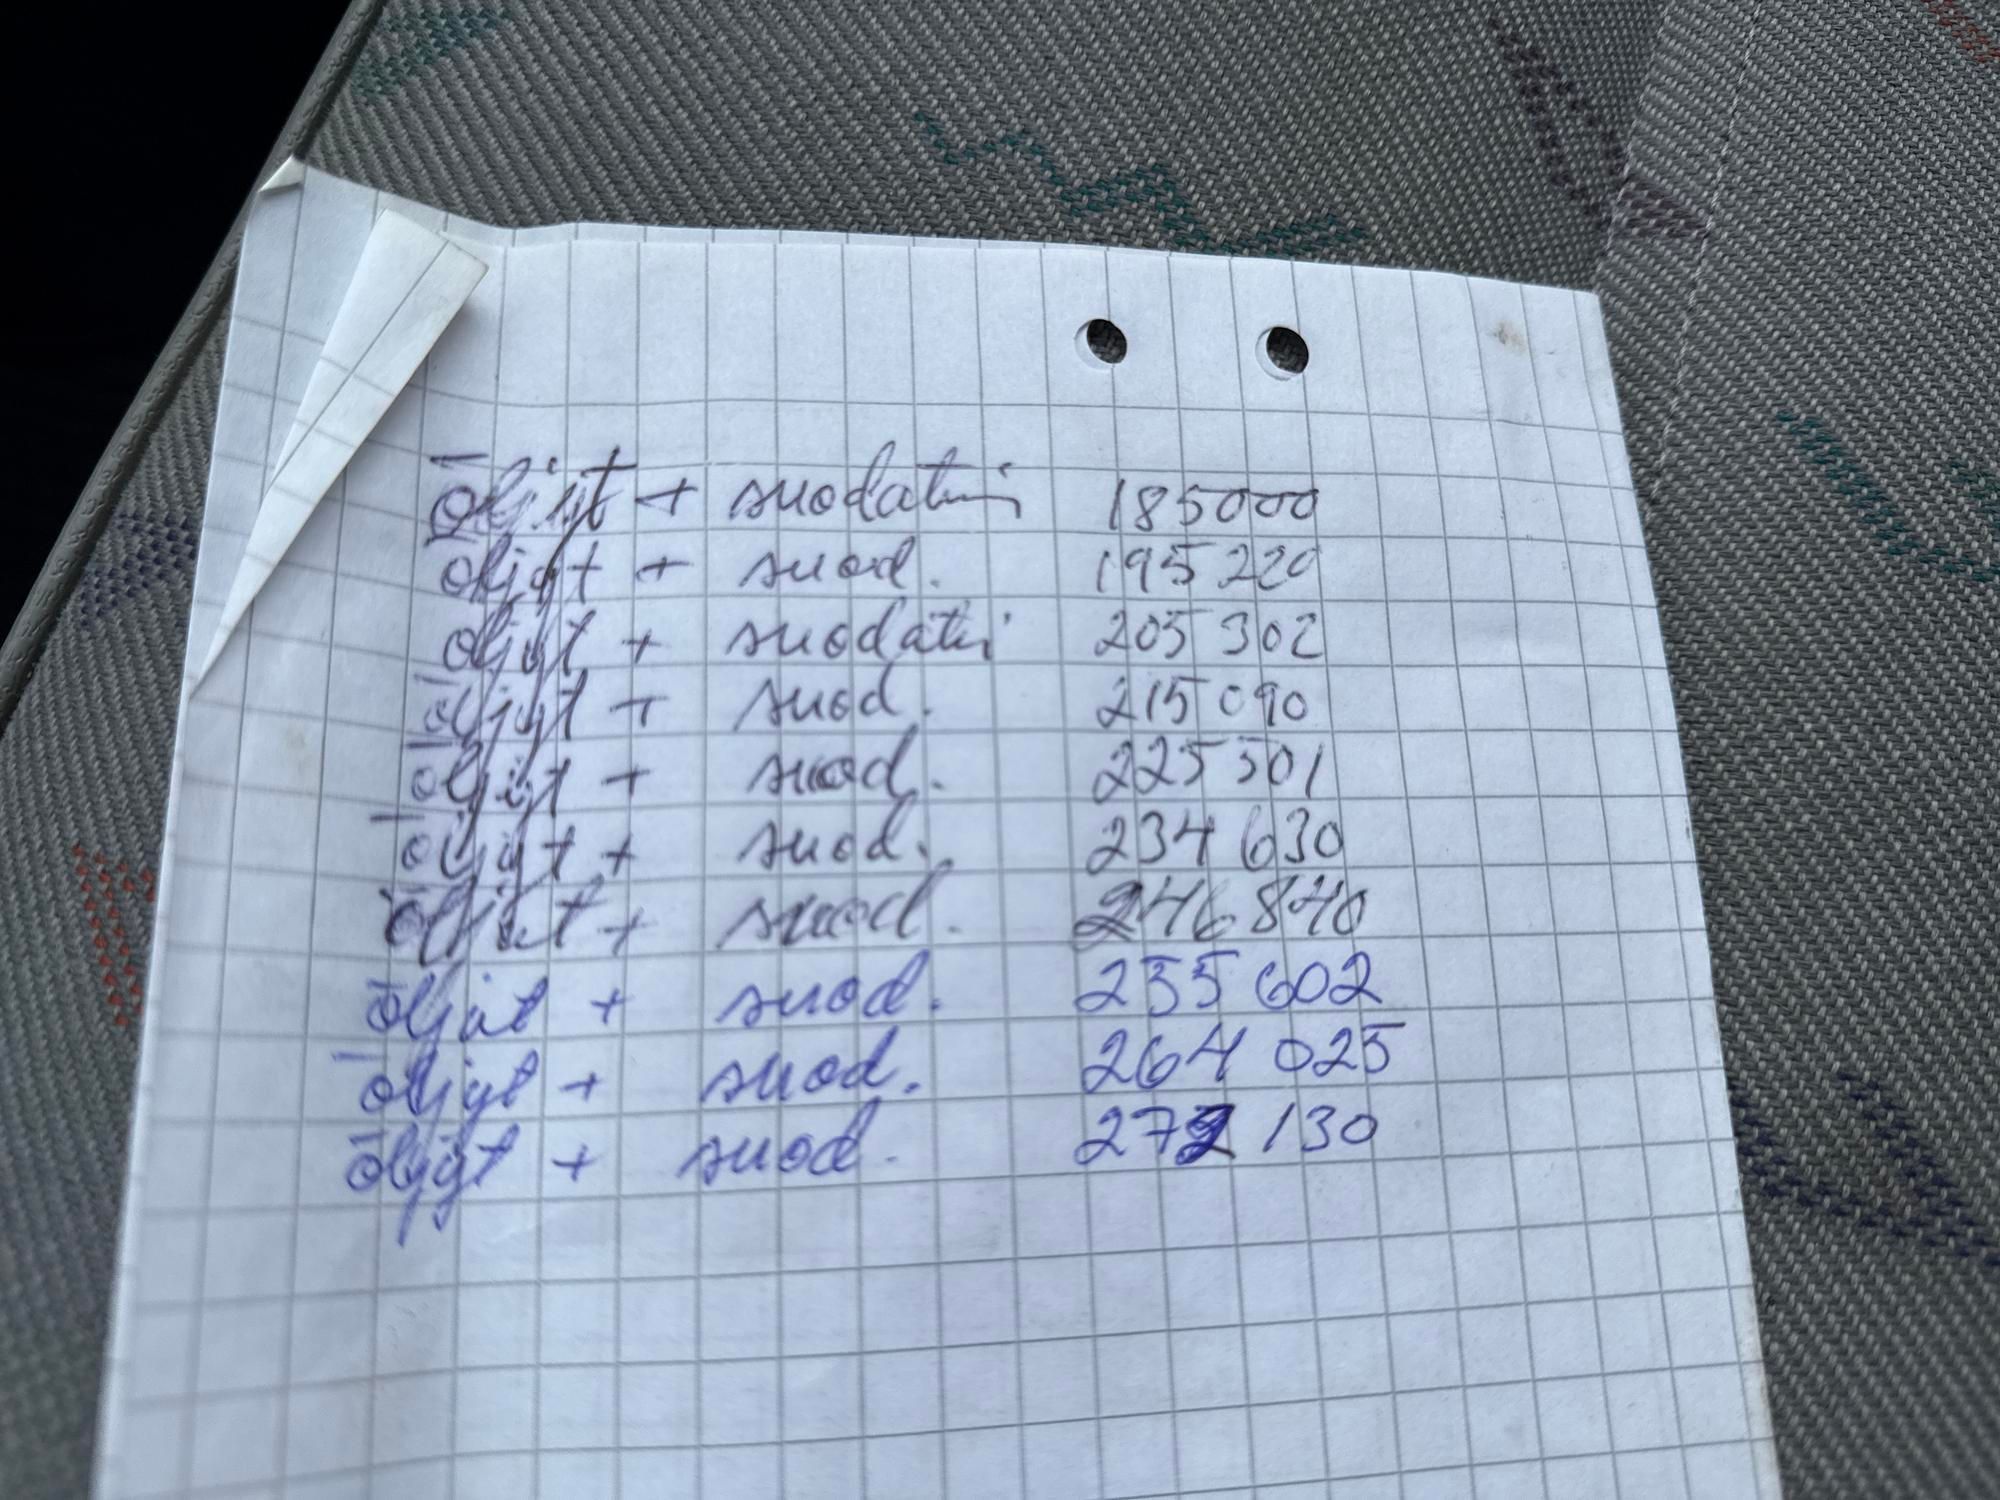 Öljyt + suodatin 185000
öljyt + suod. 195 220
öljyt + suodatin 205 302
öljyt + suod. 215 090
öljyt + suod. 225 501
öljyt + suod. 234 630
öljyt + suod. 246 840
öljyt + suod. 255 602
öljyt + suod. 264 025
öljyt + suod. 272 130